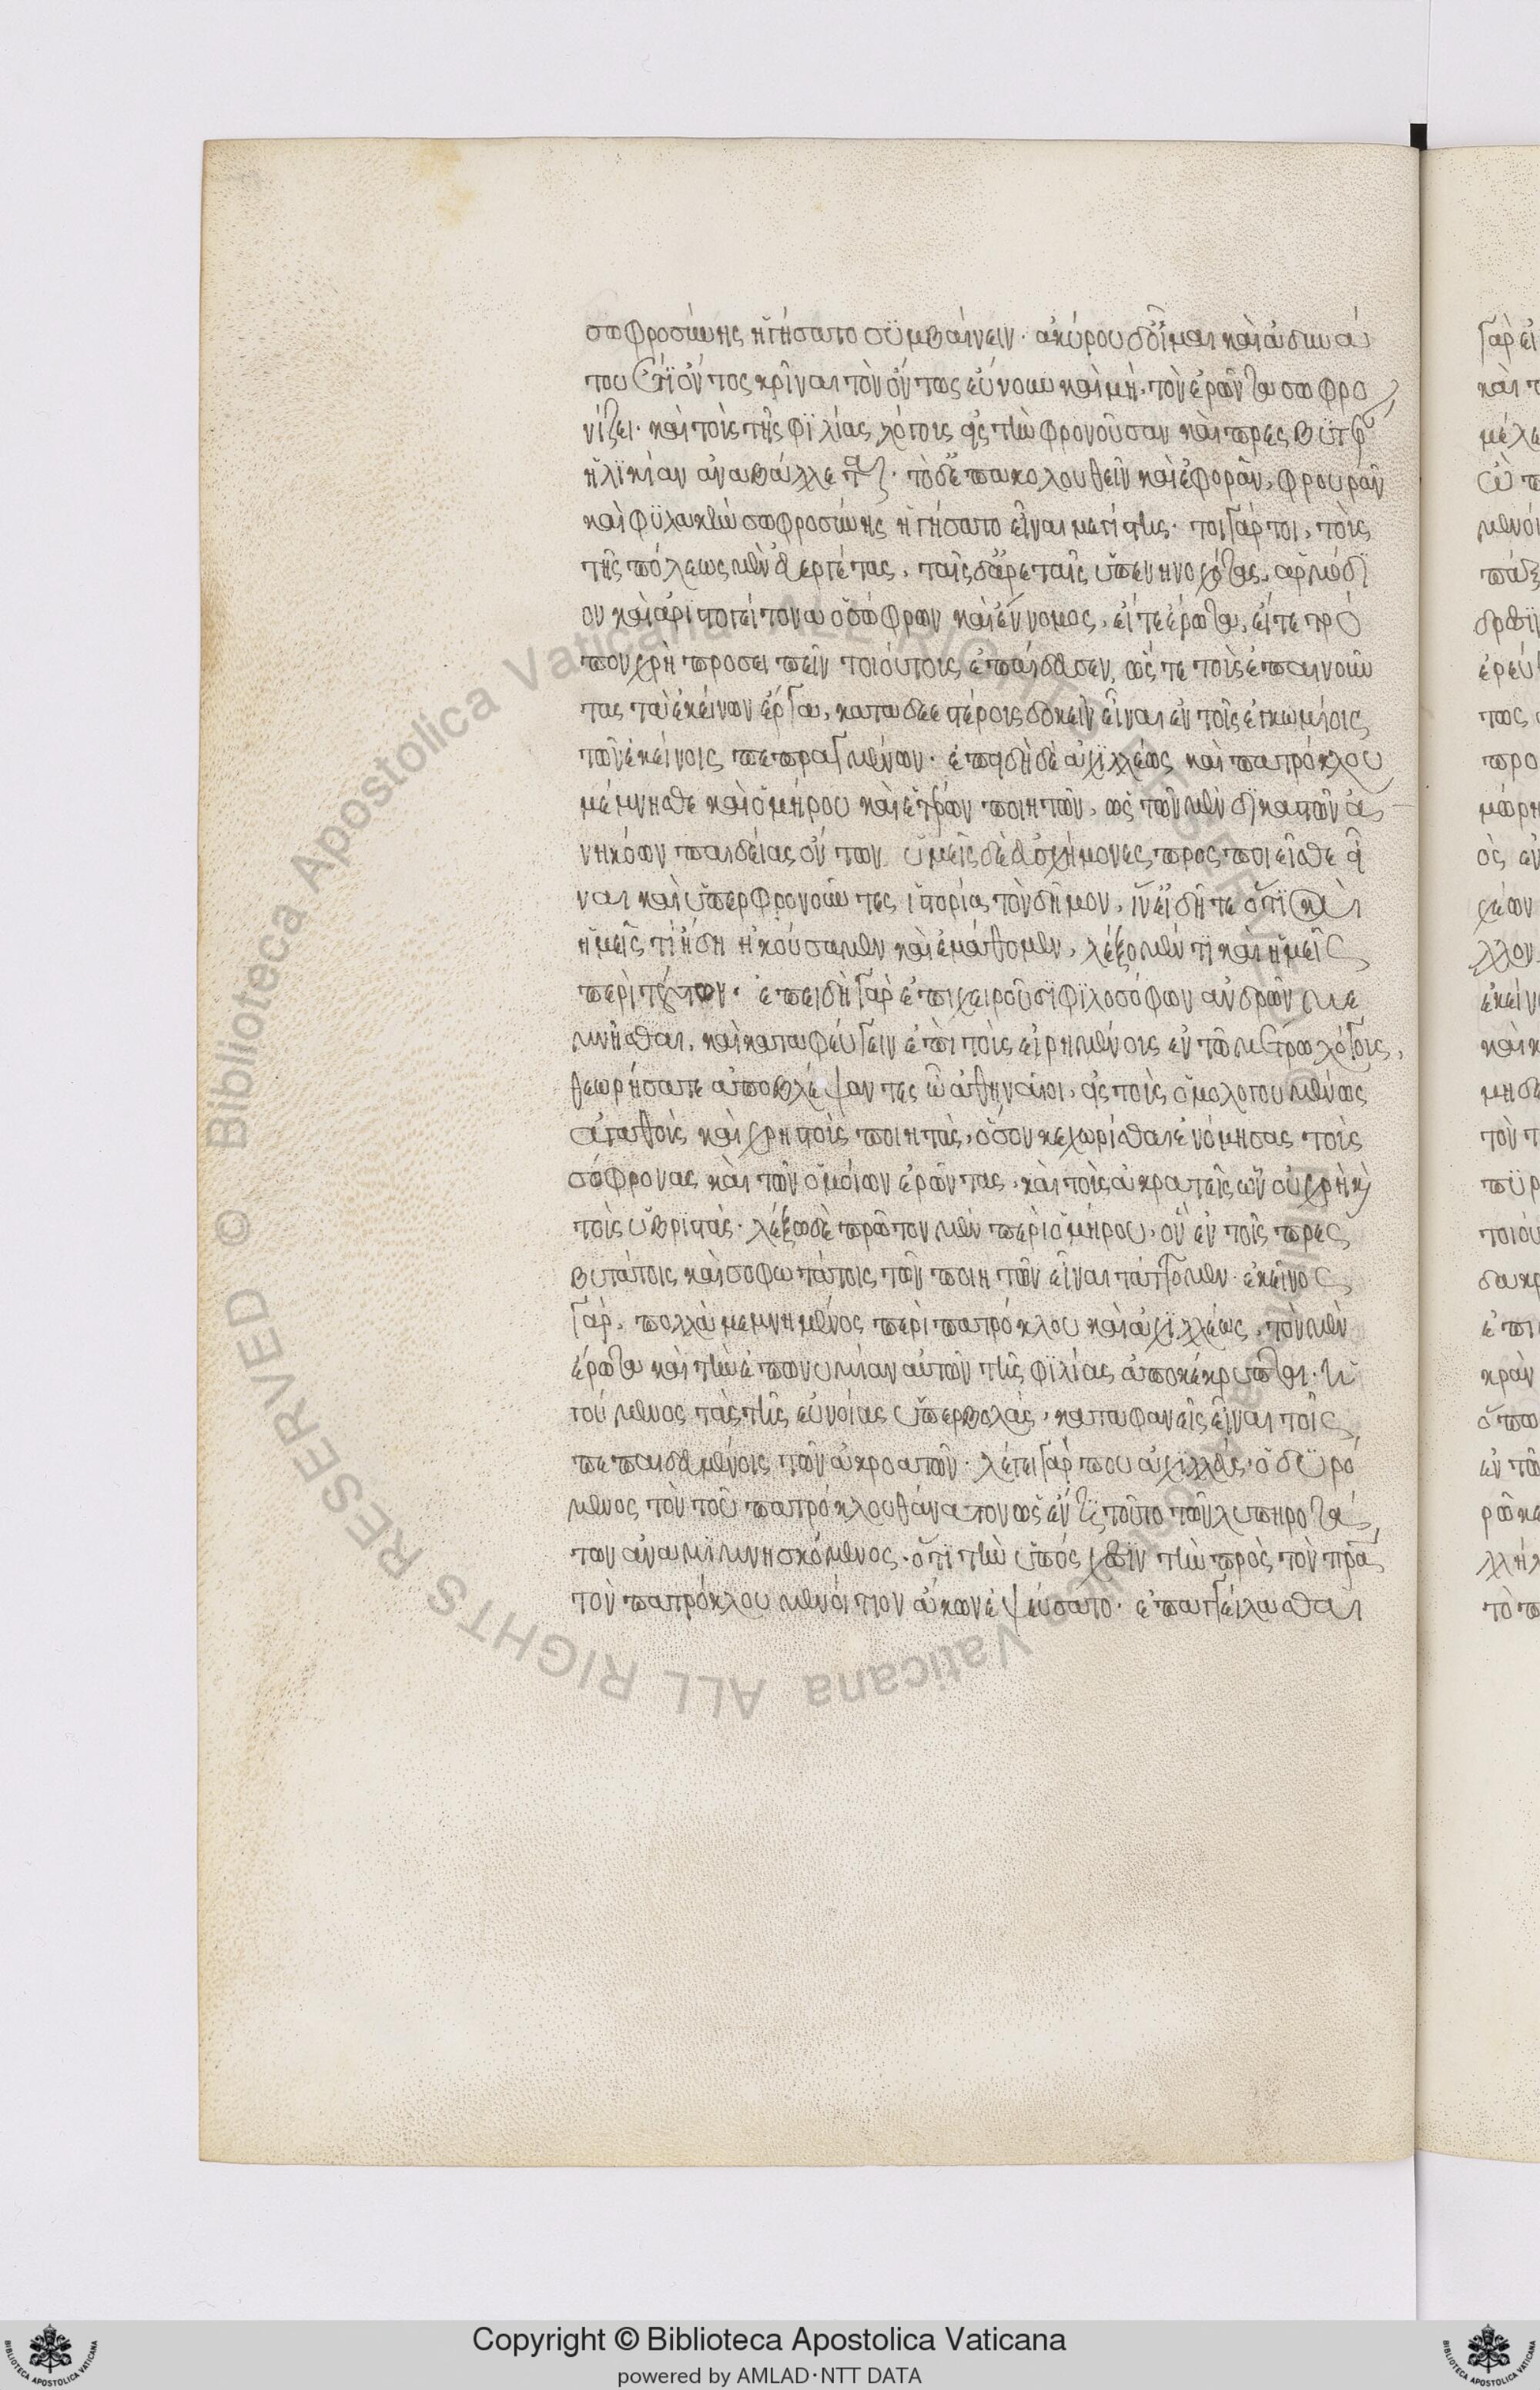 σωφροσύνης ἡγήσατο συμβαίνειν· ἀκύρου δ' οἶμαι καὶ ἀδυνά
του ἔτι ὄντος κρῖναι τὸν ὄντως εὔνουν καὶ μή, τὸν ἐρῶντα σωφρο
νίζει· καὶ τοὺς τῆς φιλίας λόγους εἰς τὴν φρονοῦσαν καὶ πρεσβυτέραν
ἡλικίαν ἀναβάλλεται· τὸ δ' ἐπακολουθεῖν καὶ ἐφορᾶν, φρουρὰν
καὶ φυλακὴν σωφροσύνης ἡγήσατο εἶναι μεγίστην· τοιγάρτοι, τοὺς
τῆς πόλεως μὲν εὐεργέτας, ταῖς δ' ἀρεταῖς ὑπενηνοχότας, ἁρμόδι
ον καὶ ἀριστογείτονα ὁ σώφρων καὶ ἔννομος, εἴτε ἔρωτα, εἴτε τρό
πον χρὴ προσειπεῖν τοιούτους ἐπαίδευσεν, ὥστε τοὺς ἐπαινοῦν
τας τὰ ἐκείνων ἔργα, καταδεεστέρους δοκεῖν εἶναι ἐν τοῖς ἐγκωμίοις
τῶν ἐκείνοις πεπραγμένων· ἐπειδὴ δὲ ἀχιλλέως καὶ πατρόκλου
μέμνησθε καὶ ὁμήρου καὶ ἑτέρων ποιητῶν, ὡς τῶν μὲν δικαστῶν ἀ
νηκόων παιδείας ὄντων ὑμεῖς δὲ εὐσχήμονες προσποιεῖσθε εἶ
ναι καὶ ὑπερφρονοῦντες ἱστορίᾳ τὸν δῆμον, ἵν' εἰδῆτε ὅτι καὶ
ἡμεῖς τι ἤδη ἠκούσαμεν καὶ ἐμάθομεν, λέξομέν τι καὶ ἡμεῖς
περὶ τούτων· ἐπειδὴ γὰρ ἐπιχειροῦσι φιλοσόφων ἀνδρῶν με
μνῆσθαι, καὶ καταφεύγειν ἐπὶ τοὺς εἰρημένους ἐν τῷ μέτρῳ λόγους,
θεωρήσατε ἀποβλέψαντες ὦ ἀθηναῖοι, εἰς τοὺς ὁμολογουμένως
ἀγαθοὺς καὶ χρηστοὺς ποιητάς, ὅσον κεχωρίσθαι ἐνόμησας τοὺς
σώφρονας καὶ τῶν ὁμοίων ἐρῶντας, καὶ τοὺς ἀκρατεῖς ὧν οὐ χρὴ καὶ
τοὺς ὑβριστάς· λέξω δὲ πρῶτον μὲν περὶ ὁμήρου, ὃν ἐν τοῖς πρεσ
βυτάτοις καὶ σοφωτάτοις τῶν ποιητῶν εἶναι τάττομεν· ἐκεῖνος
γάρ, πολλὰ μεμνημένος περὶ πατρόκλου καὶ ἀχιλλέως, τὸν μὲν
ἔρωτα καὶ τὴν ἐπωνυμίαν αὐτῶν τῆς φιλίας ἀποκέκρυπται· ἡ
γούμενος τὰς τῆς εὐνοίας ὑπερβολάς, καταφανεῖς εἶναι τοῖς
πεπαιδευμένοις τῶν ἀκροατῶν· λέγει γάρ που ἀχιλλεύς, ὀδυρό
μενος τὸν τοῦ πατρόκλου θάνατον ὡς ἕν τι τοῦτο τῶν λυπηροτά
των ἀναμιμνησκόμενος· ὅτι τὴν ὑπόσχεσιν τὴν πρὸς τὸν πατέρα
τὸν πατρόκλου μενοίτιον ἄκων ἐψεύσατο· ἐπαγγείλασθαι